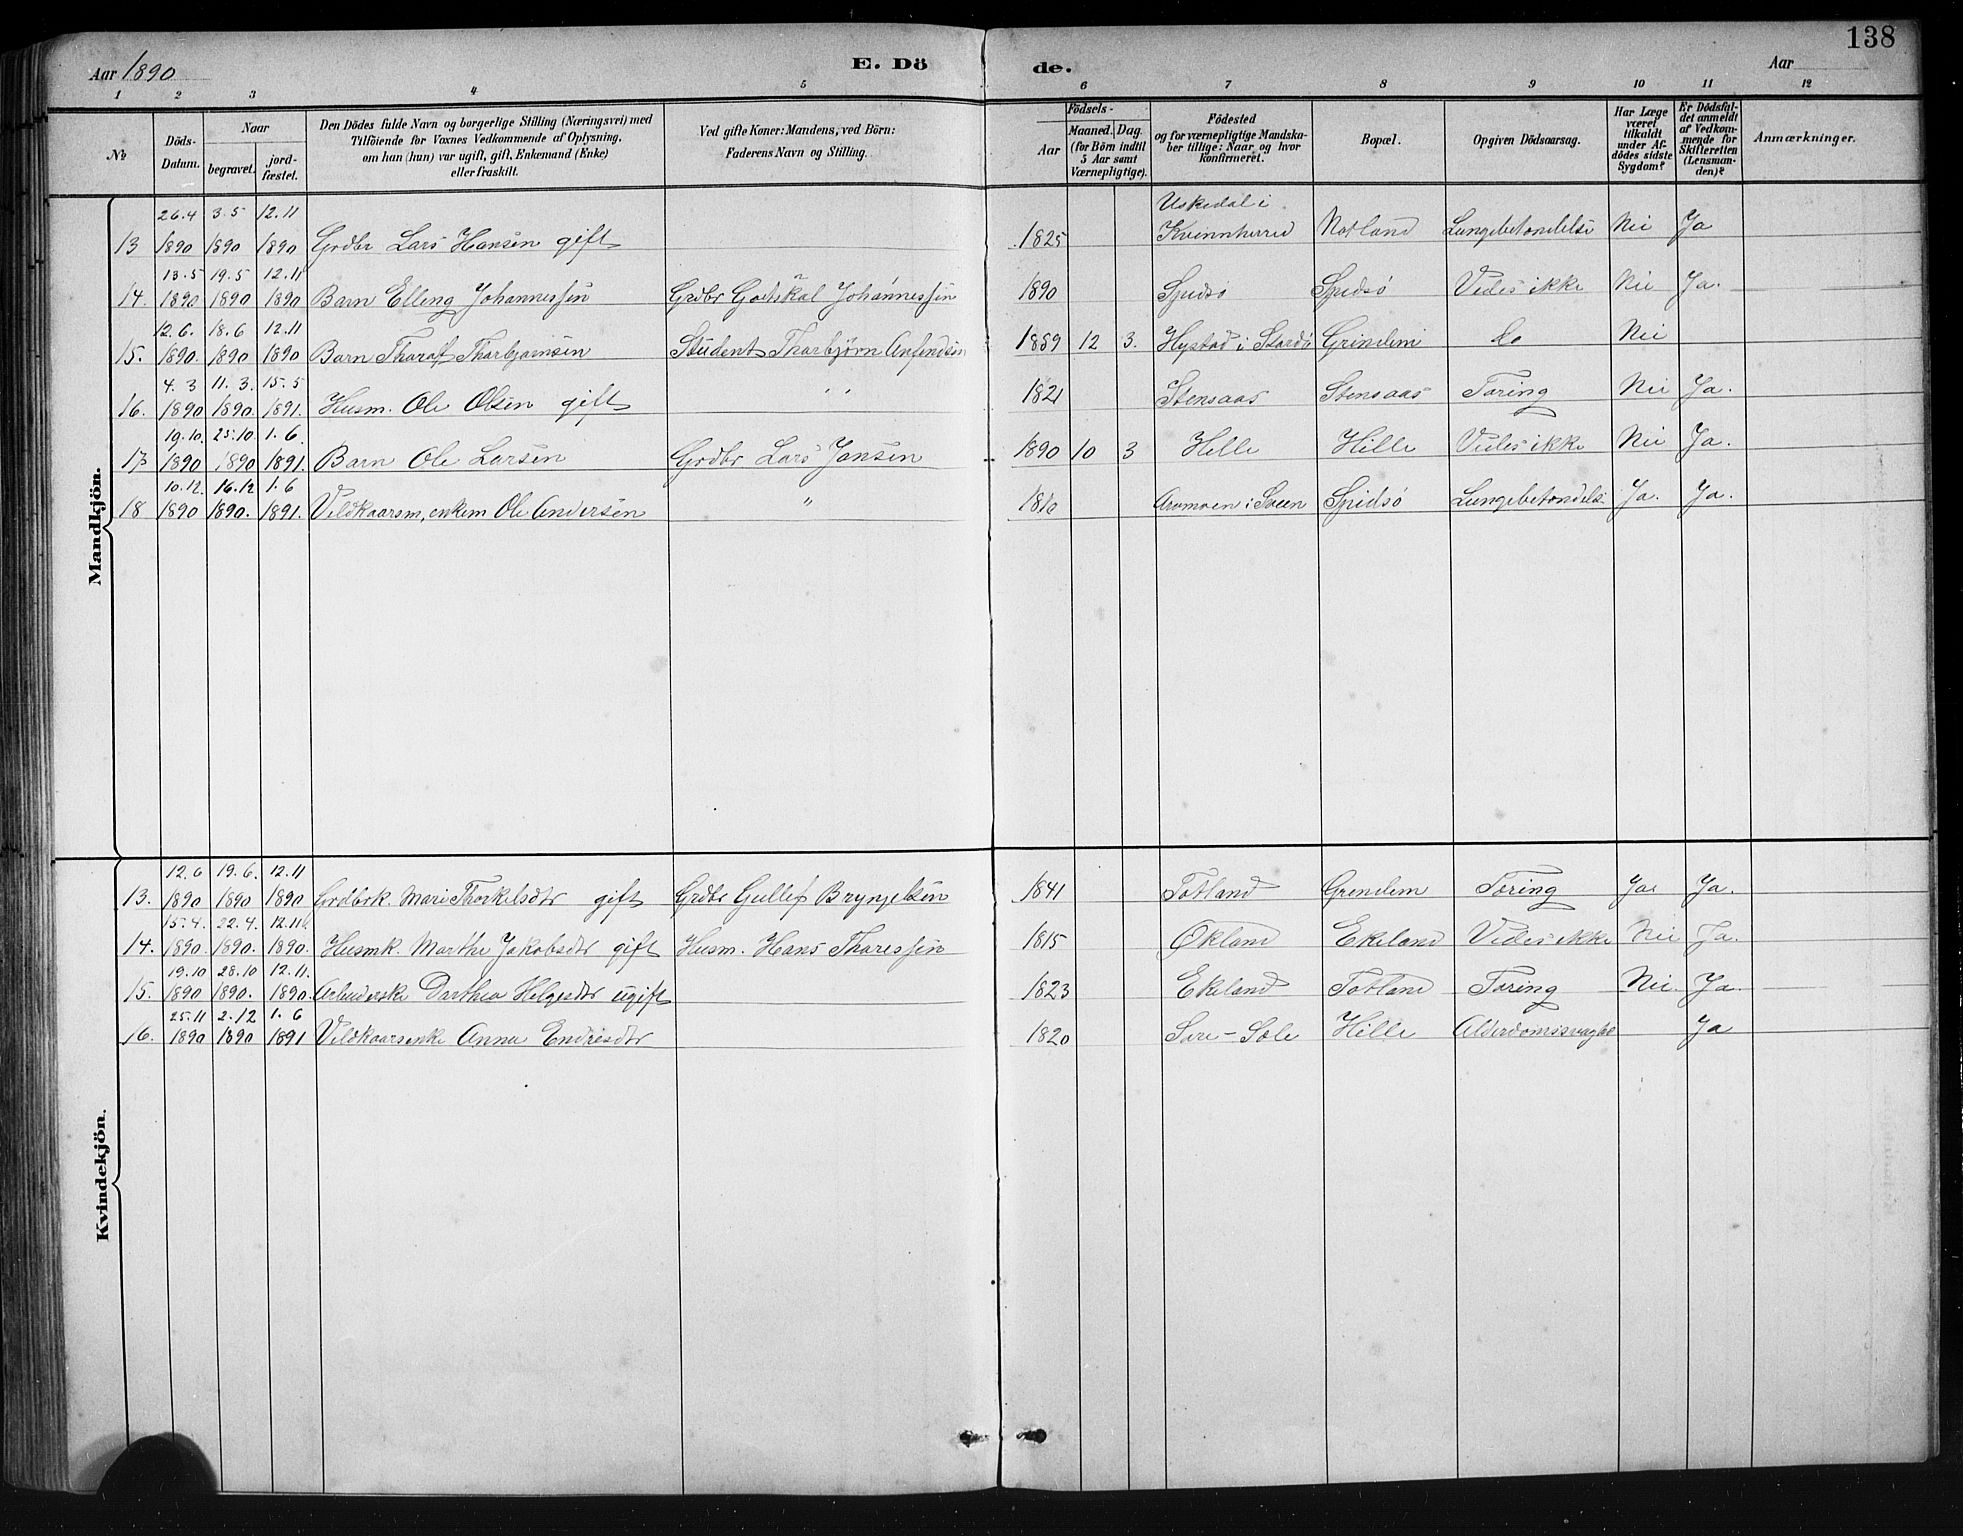 138
Aar 1890 E. Dö de. Aar
1 2 3 4 5 6 7 8 9 10 11 12
№
Döds-Datum.
Naar
begravet.
jord-fæstet.
Den Dödes fulde Navn og borgerlige Stilling (Næringsvei) med
Tilföiende for Voxnes Vedkommende af Oplysning,
om han (hun) var ugift, gift, Enkemand (Enke)
eller fraskilt.
Ved gifte Koner: Mandens, ved Börn:
Faderens Navn og Stilling.
Födsels-
Aar
Maaned. Dag.
(for Börn indtil
5 Aar samt
Værnepligtige).
Födested
og for værnepligtige Mandska-
ber tillige: Naar og hvor
Konfirmeret.
Bopæl.
Opgiven Dödsaarsag.
Har Læge
været
tilkaldt
under Af-
dödes sidste
Sygdom?
Er Dödsfal-
det anmeldt
af Vedkom-
mende for
Skifteretten
(Lensman-
den)?
Anmærkninger.
Mandkjön.
26.4 3.5 12.11 Uskedal i
13 1890 1890 1890 Grdbr Lars Hansen gift 1825 Kvinnherred Notland Lungebetændelse Nei Ja
13.5 19.5 12.11
14. 1890 1890 1890 Barn Elling Johannessen Grdbr Godtskal Johannessen 1890 Spidsö Spidsö Vides ikke Nei Ja.
12.6. 18.6 12.11
15. 1890. 1890 1890 Barn Tharaf Tharbjørnsen Student Tharbjørn Anfindsen 1889 12 3. Hystad i Stordö Grindem do Nei
4.3 11.3. 15.5
16. 1890 1890. 1891. Husm. Ole Olsen gift " 1821 Stensaas Stensaas Tæring Nei Ja.
19.10. 25.10. 1.6.
17 1890 1890 1891. Barn Ole Larsen Grdbr Lars Jansen 1890 10 3 Hille Hille Vides ikke Nei Ja.
10.12. 16.12 1.6
18 1890 1890. 1891. Vildkaarsm, enkem Ole Andersen " 1810 i Sveen Spidsö Lungebetændels. Ja. Ja.
Kvindekjön.
12.6 19.6. 12.11
13. 1890 1890 1890 Grdbrk. Mari Thorkelsdtr gift Grdbr Gullef Brynjelsen 1841 Totland Grendem Tæring Ja Ja.
15.4. 22.4. 12.11
14. 1890. 1890. 1890. Husmk. Marthe Jakobsdtr gift Husm. Hans Tharessen 1815 Økland Ekeland Vides ikke Nei Ja.
19.10 28.10 12.11.
15. 1890 1890. 1890. Arbeiderske Darthea Helgesdtr ugift 1823 Ekeland Totland Tæring Nei. Ja.
25.11 2.12 1.6
16. 1890 1890 1891 Vildkaarsenke Anna Endresdtr 1820 Sore-Sole Hille Alderdomssvaghe Ja